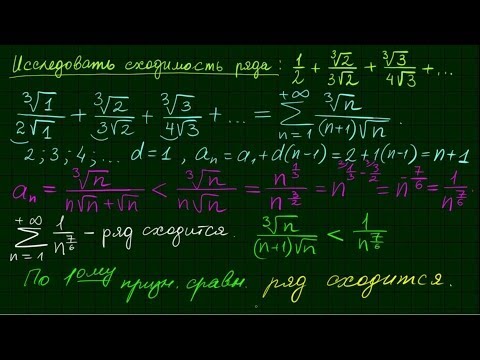 Исследовать сходимость ряда: 1/2 + ∛2/(3√2) + ∛3/(4√3) + ...
∛1/(2√1) + ∛2/(3√2) + ∛3/(4√3) + ... = ∑_{n=1}^{+∞} ∛n/((n+1)√n).
2; 3; 4; ... d=1, aₙ = a₁ + d(n-1) = 2 + 1(n-1) = n+1
aₙ = ∛n/(n√n + √n) < ∛n/(n√n) = n^{1/3}/n^{3/2} = n^{1/3 - 3/2} = n^{-7/6} = 1/n^{7/6}.
∑_{n=1}^{+∞} 1/n^{7/6} – ряд сходится. ∛n/((n+1)√n) < 1/n^{7/6}
По 1ому призн. сравн. ряд сходится.